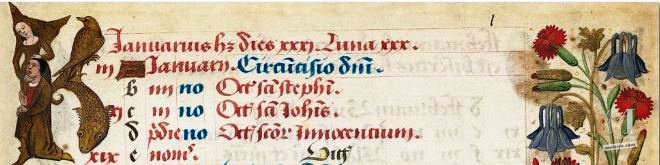 Januarius hz dies xxxi. Luna xxx.
iii Januarii. Circūcisio dm̄.
b iiii no Oct̄ sc̄i stephī.
xi c iii no Oct̄ sc̄i Johīs.
d pdie no Oct̄ sc̄or Innocentium.
xix e nonẽ.